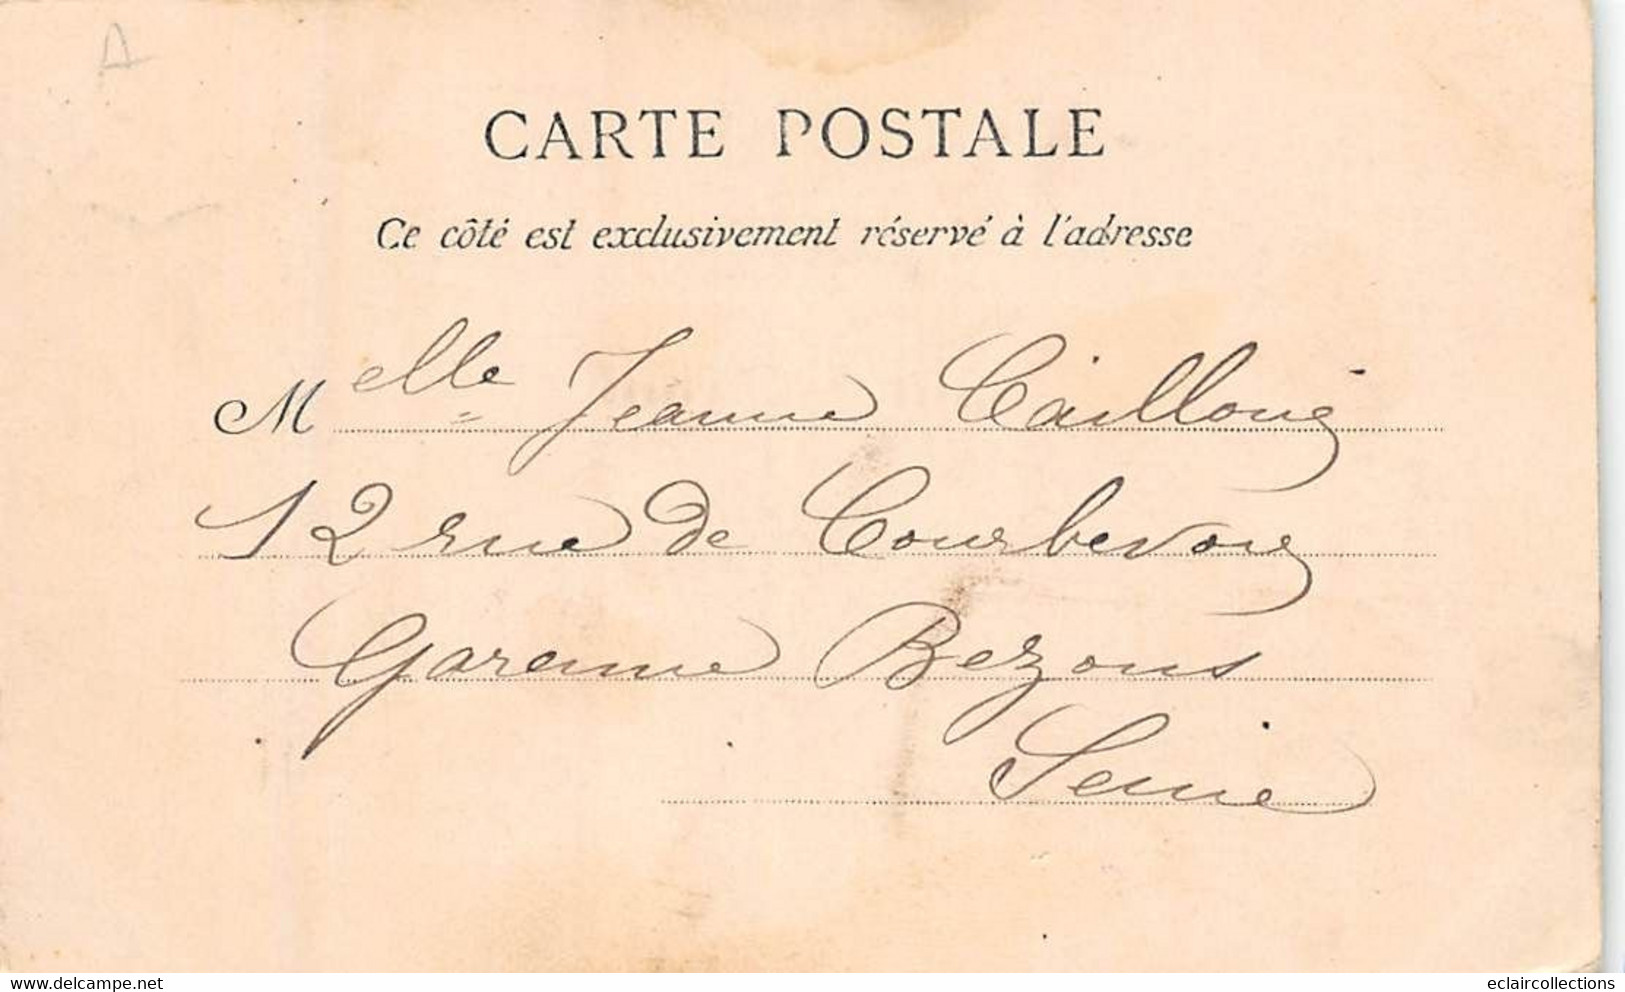 A
CARTE POSTALE
Ce côté est exclusivement réservé à l'adresse
Melle Jeanne Cailloué
12 rue de Courbevoie
Garenne Bezons
Seine
www.delcampe.net
eclaircollections